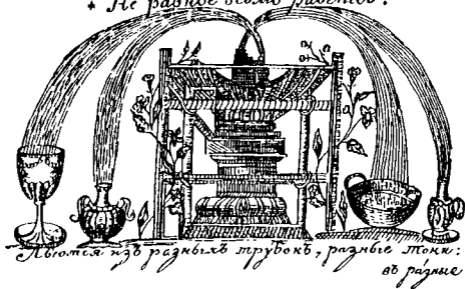 * Не равное всѣмъ равенство.
Льются изъ разныхъ трубокъ, разные токи:
въ ра́зные